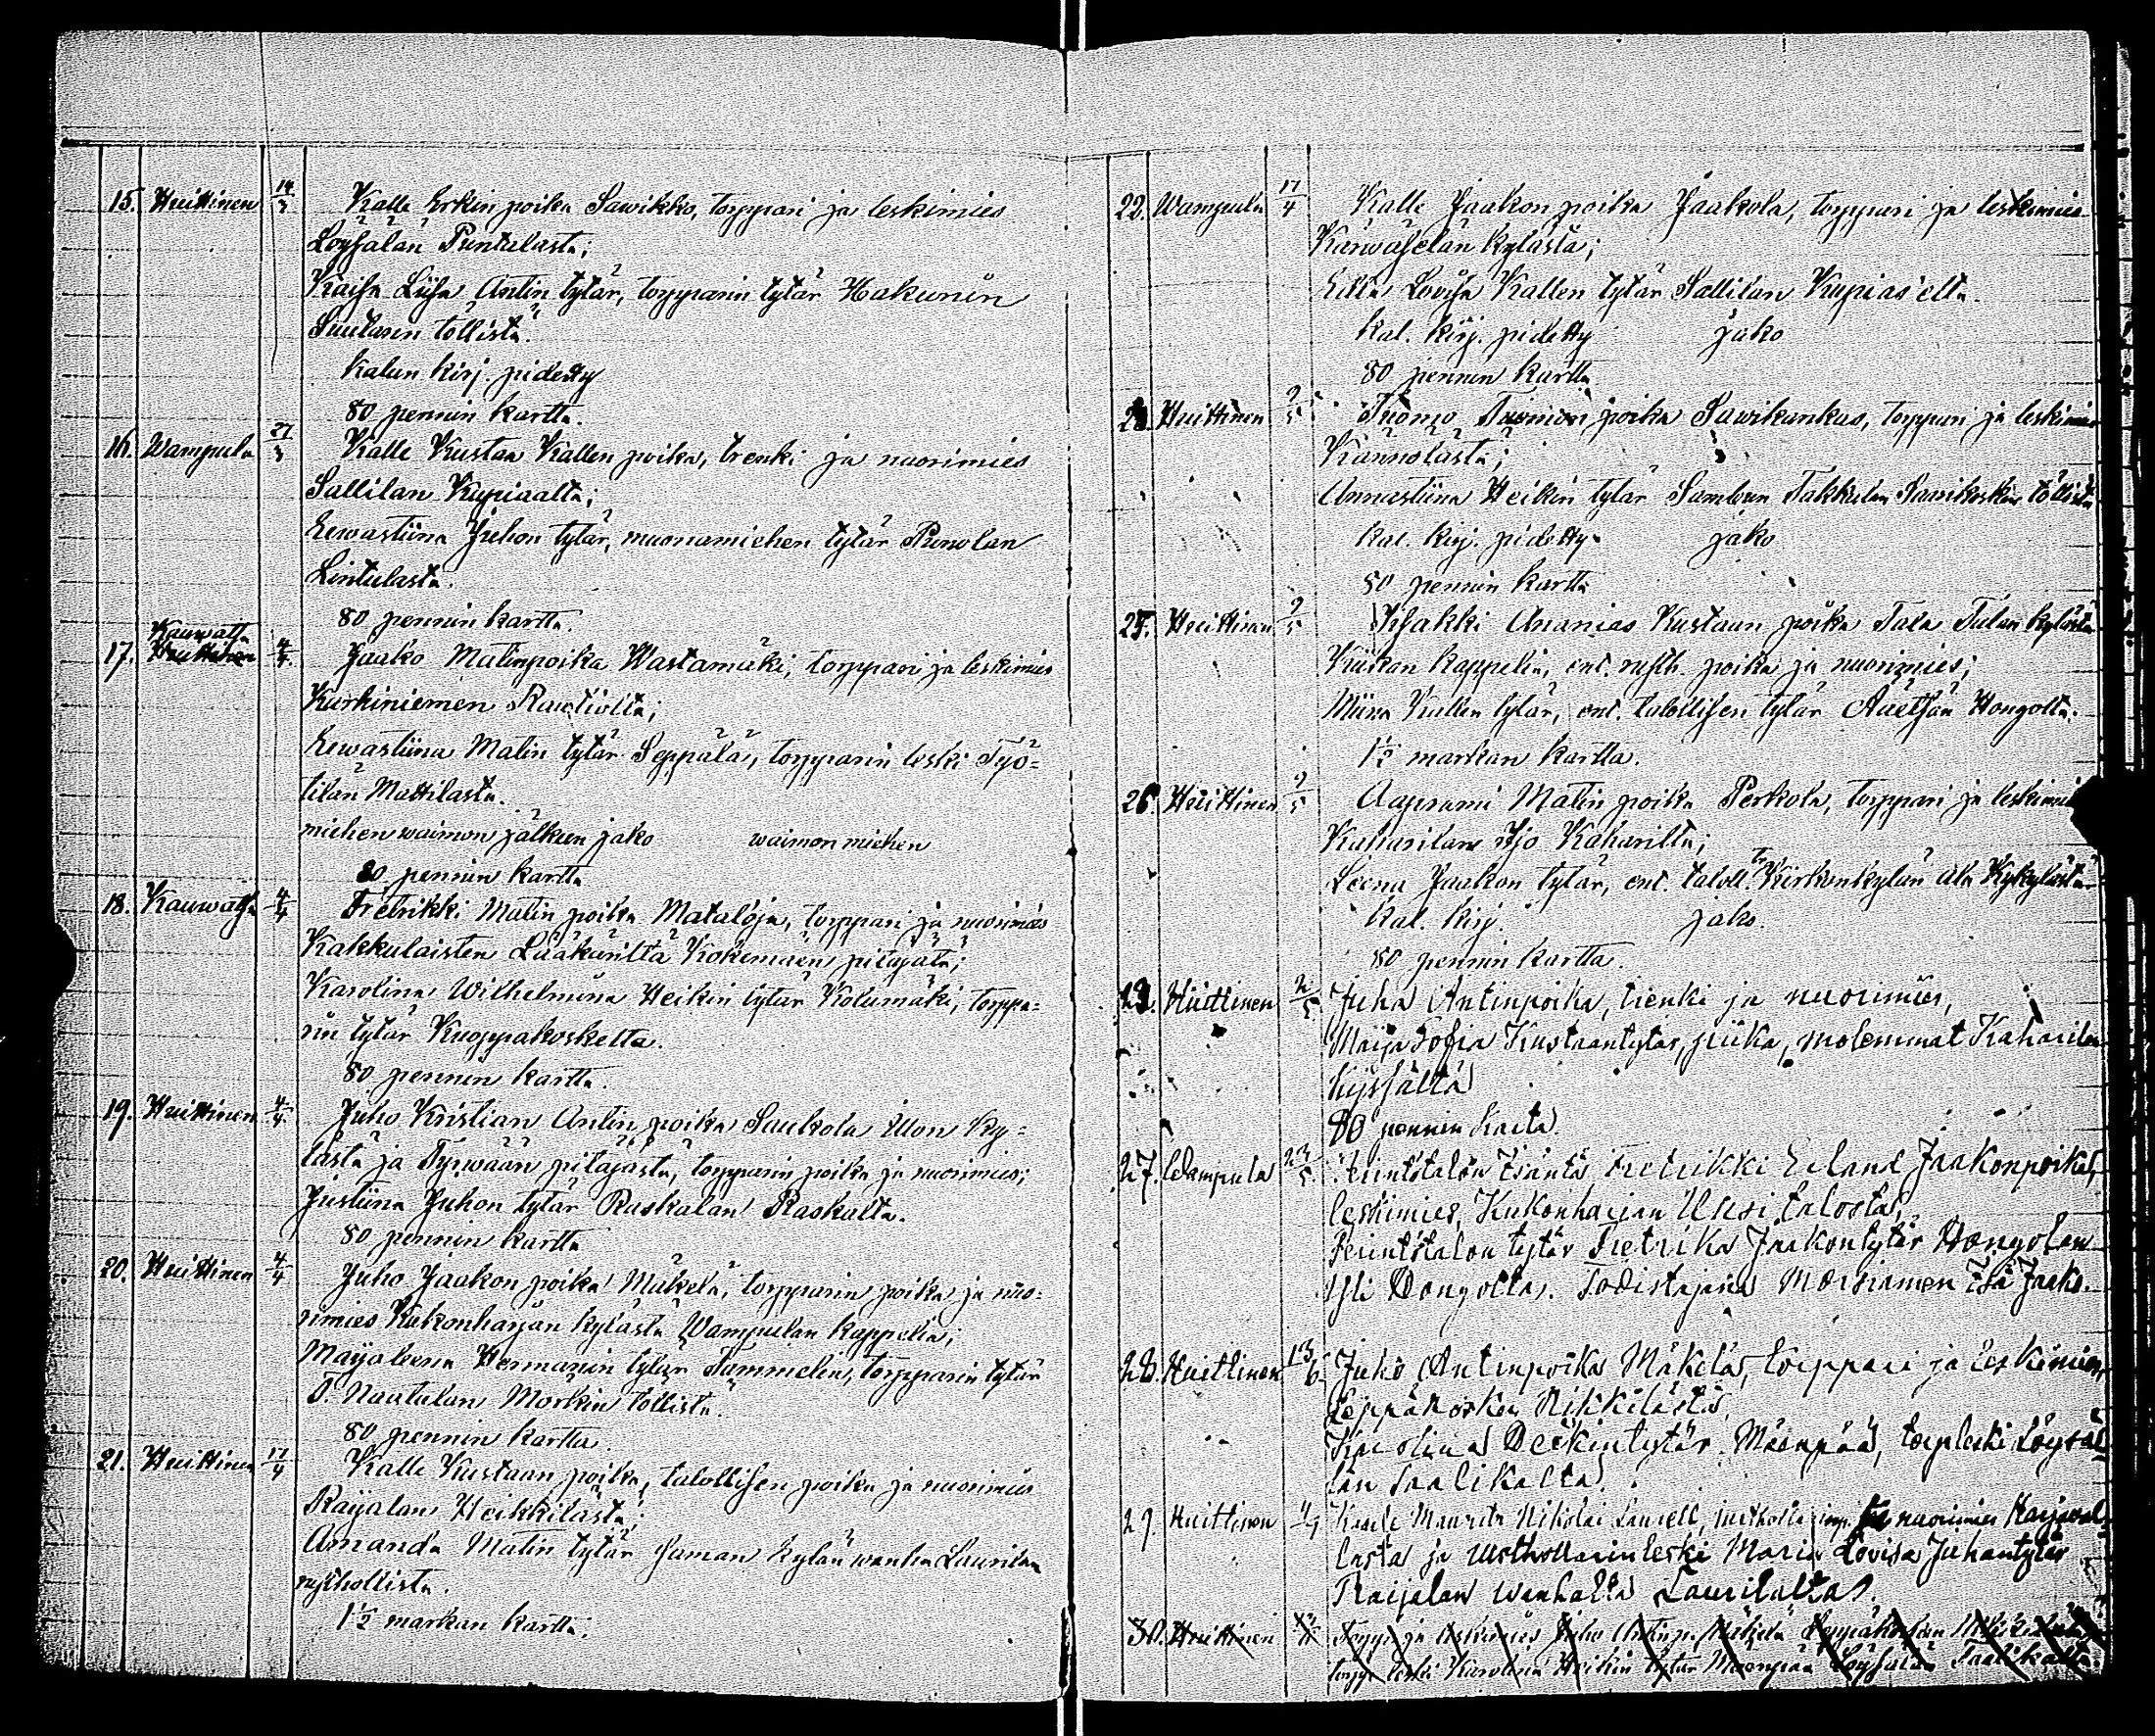 15. Huittinen 14/3 Kalle Erkin poika Sawikko, torppari ja leskimies
Löysälän Puntalasta;
Kaisa Liisa Antin tytär, torpparin tytär Hakunin
Suutarin töllistä.
kalun kirj. pidetty
80 pennin kartta.
16. Wampula 27/3 Kalle Kustaa Kallen poika, trenki ja nuorimies
Sallilan Kupiaalta;
Eewastiina Juhon tytär, muonamiehen tytär Punolan
Lintulasta.
80 pennin kartta.
Kauwatsa
17. Huittinen 4/4 Jaako Matinpoika Wastamäki, torppari ja leskimies
Karhiniemen Rautiolta;
Eewastiina Matin tytär Seppälä, torpparin leski Työ=
tilän Mattilasta.
miehen waimon jälkeen jako waimon miehen
80 pennin kartta
18. Kauwatsa 4/4 Fretrikki Matin poika Mataloja, torppari ja nuorimies
Kakkulaisten Lääkäriltä Kokemäen pitäjätä;
Karolina Wilhelmiina Heikin tytär Kolumäki, torppa=
rin tytär Kuoppakoskelta.
80 pennin kartta.
19. Huittinen 4/4 Juho Kristian Antin poika Saukola Illon ky=
lästä ja Tyrwään pitäjästä, torpparin poika ja nuorimies;
Justiina Juhon tytär Raskalan Raskalta.
80 pennin kartta
20. Huittinen 4/4 Juho Jaakon poika Mäkelä, torpparin poika ja nuo=
rimies Kukonharjan kylästä Wampulan kappelia;
Maijaleena Hermanin tytär Tammelin, torpparin tytär
O. Nautulan Morkin töllistä.
80 pennin kartta.
21. Huittinen 17/4 Kalle Kustaan poika, talollisen poika ja nuorimies
Raijalan Heikkilästä;
Amanda Matin tytär saman kylän wanha Laurilan
rusthollista.
1½ markan kartta.
22. Wampula 17/4 Kalle Jaakon poika Jaakola, torppari ja leskimies
Kärwäselän kylästä;
Edla Lovisa Kallen tytär Sallilan Kupias'elta.
kal. kirj. pidetty jako
80 pennin kartta
Huittinen 2/5 Tuomo Tuomon poika Sawikankas, torppari ja leskimies
Kännölästä;
Annastiina Heikin tytär Sambun Takkulan töllistä
Kal. kirj. pidetty jako
80 pennin kartta
25. Huittinen 2/5 Isakki Ananias Kustaan poika Tala Talan kylästä
Kiikan kappelia, ent. rusth. poika ja nuorimies;
Miina Kallen tytär, ent. talollisen tytär Äetsän Hongolta.
1½ markan kartta.
26. Huittinen 2/5 Aaprami Matin poika Perkola, torppari ja leskimies
Kaharilan Iso Kaharilta;
Leena Jaakon tytär, ent. taloll. tr Kirkonkylän ala
Kal. kirj. jako.
80 pennin kartta.
Huittinen 2/5 Juha Antinpoika, trenki ja nuorimies,
Maija Sofia Kustaantytär, piika, molemmat Kaharilan
80 pennin karta.
27. Wampula 23/5 Perintötalon Isäntä Fretrikki Erland Jaakonpoika,
leskimies, Kukonharjan Uusi talosta,
Perintötalon tytär Fretrika Jaakontytär Hongolan
Yli Hongolta. Todistajana Morsiamen isä Jaako.
28. Huittinen 13/6 Juho Antinpoika Mäkelä, torppari ja leskimies,
Leppäkosken Nikkilästä,
Karolina Heikintytär Mäenpää, torp leski Löysä
län Taalikalta.
29. Huittinen Kaarle Maurits Nikolai Laurell, nuorimies Karjaval
lasta ja Rusthollarin leski Maria Lovisa Juhantytär
Raijalan wanhalta Laurilalta.
30. Huittinen Torpp. ja leskimies Juho Antinp. Mäkelä Leppäkosken Nikkilästä
torpp. leski Karolina Heikin tytär Mäenpää Löysälän Taalikalta.